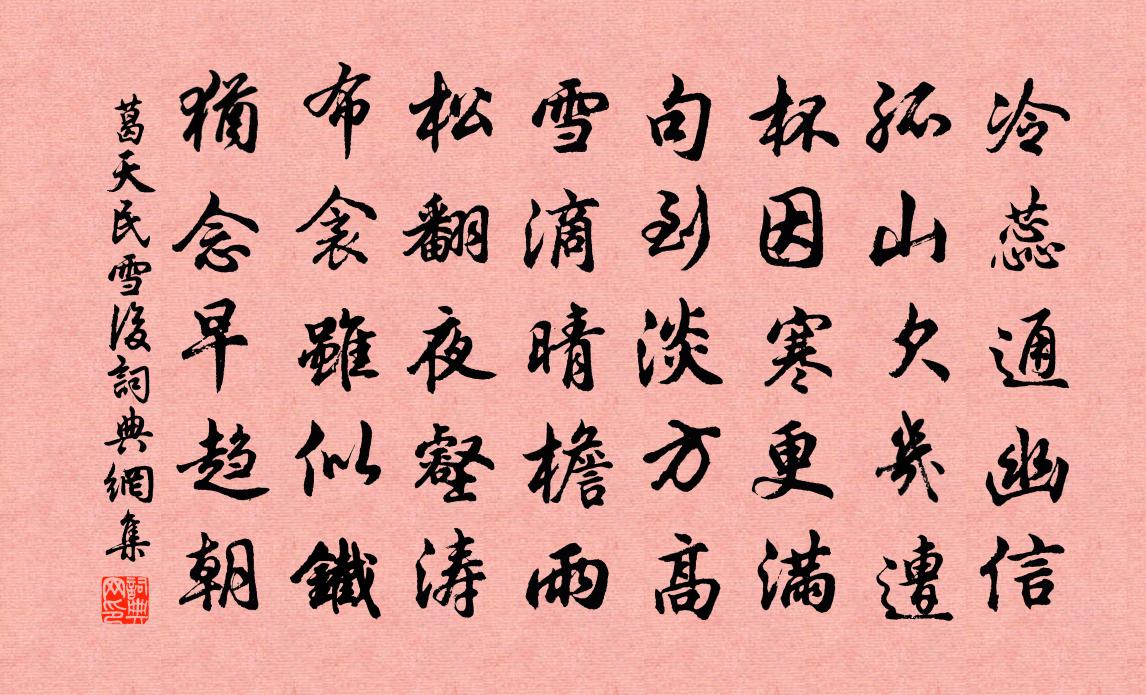 冷蕊通幽信
孤山欠幾遭
杯因寒更滿
句到淡方高
雪滴晴檐雨
松翻夜壑濤
布衾雖似鐵
猶念早趨朝
葛天民雪後詞典網集
詞典網印